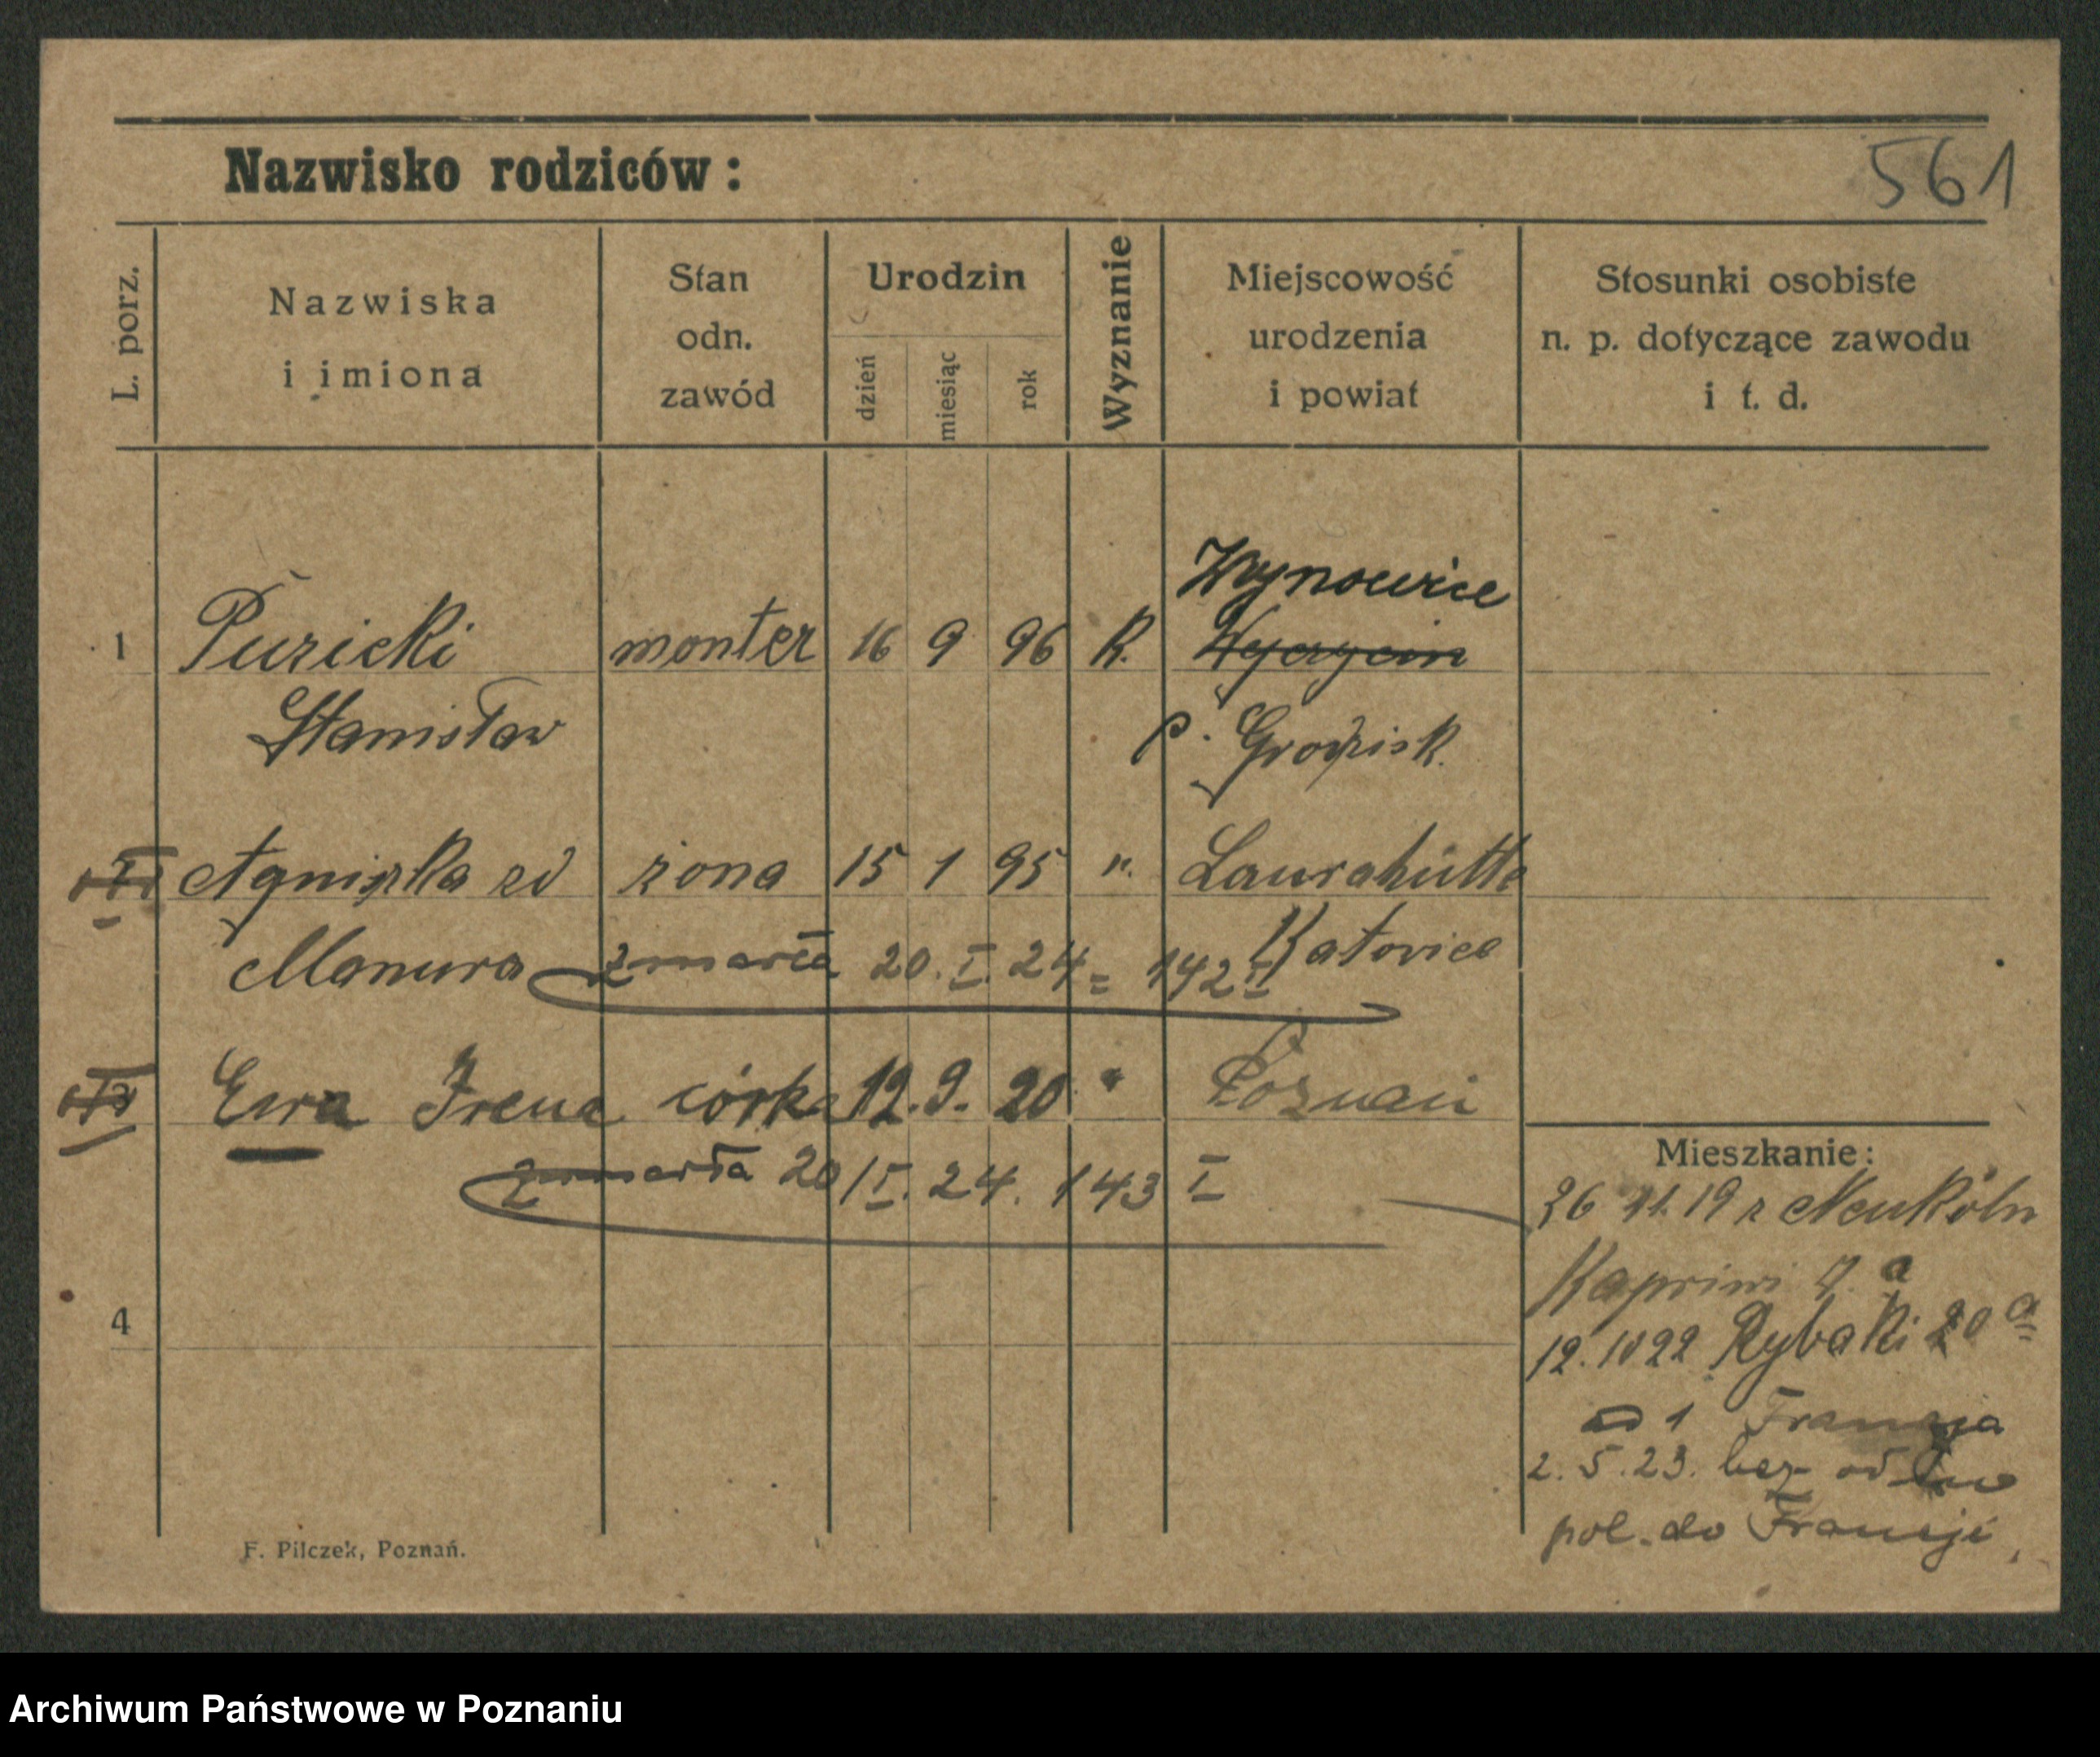 Nazwisko rodziców:
561
L. porz.
Nazwiska
i imiona
Stan
odn.
zawód
Urodzin
dzień
miesiąc
rok
Wyznanie
Miejscowość
urodzenia
i powiat
Stosunki osobiste
n. p. dotyczące zawodu
i t. d.
Wynowice
1 Puricki monter 16 9 96 R.
Stanisław p. Grodzisk.
Agniszka żona 15 1 95 ". Laurahütte
Manura zmarła 20. I. 24 = 142 I Katovice
Ewa Irena córka 12. 9. 20 " Poznań
zmarła 20 I. 24. 143 I
Mieszkanie:
26 11. 19 z Neukölln
Kapriwi 7. a
4
12. 10 22 Rybaki 20 a
1 Francja
2. 5. 23. bez
pol. do Francji
F. Pilczek, Poznań.
Archiwum Państwowe w Poznaniu